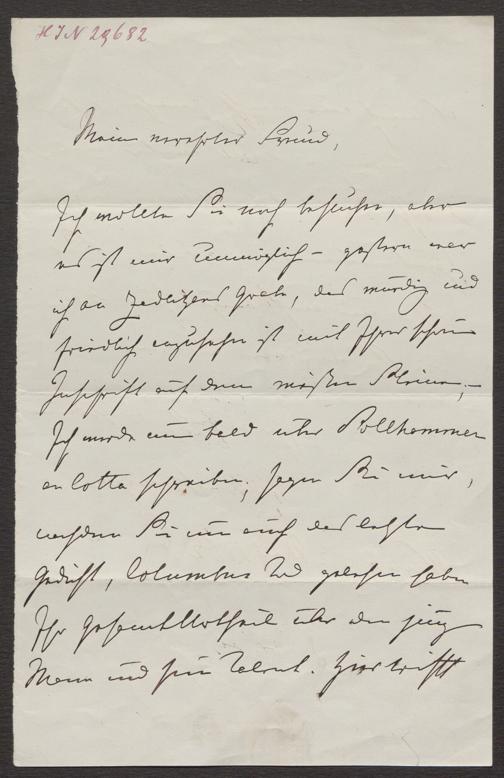 HIN 29682
Mein verehrter Freund,
Ich wollte Sie noch besuchen, aber
es ist mir unmöglich – gestern war
ich an Zedlitzens Grab, das würdig und
friedlich anzusehn ist mit Ihrer schönen
Inschrift auf dem weißen Steine, –
Ich werde nun bald über Pollhammer
an Cotta schreiben, sagen Sie mir,
nachdem Sie nun auch das letzte
Gedicht, Columbus Tod gelesen haben
Ihr Gesammturtheil über den jungen
Mann und sein Talent.